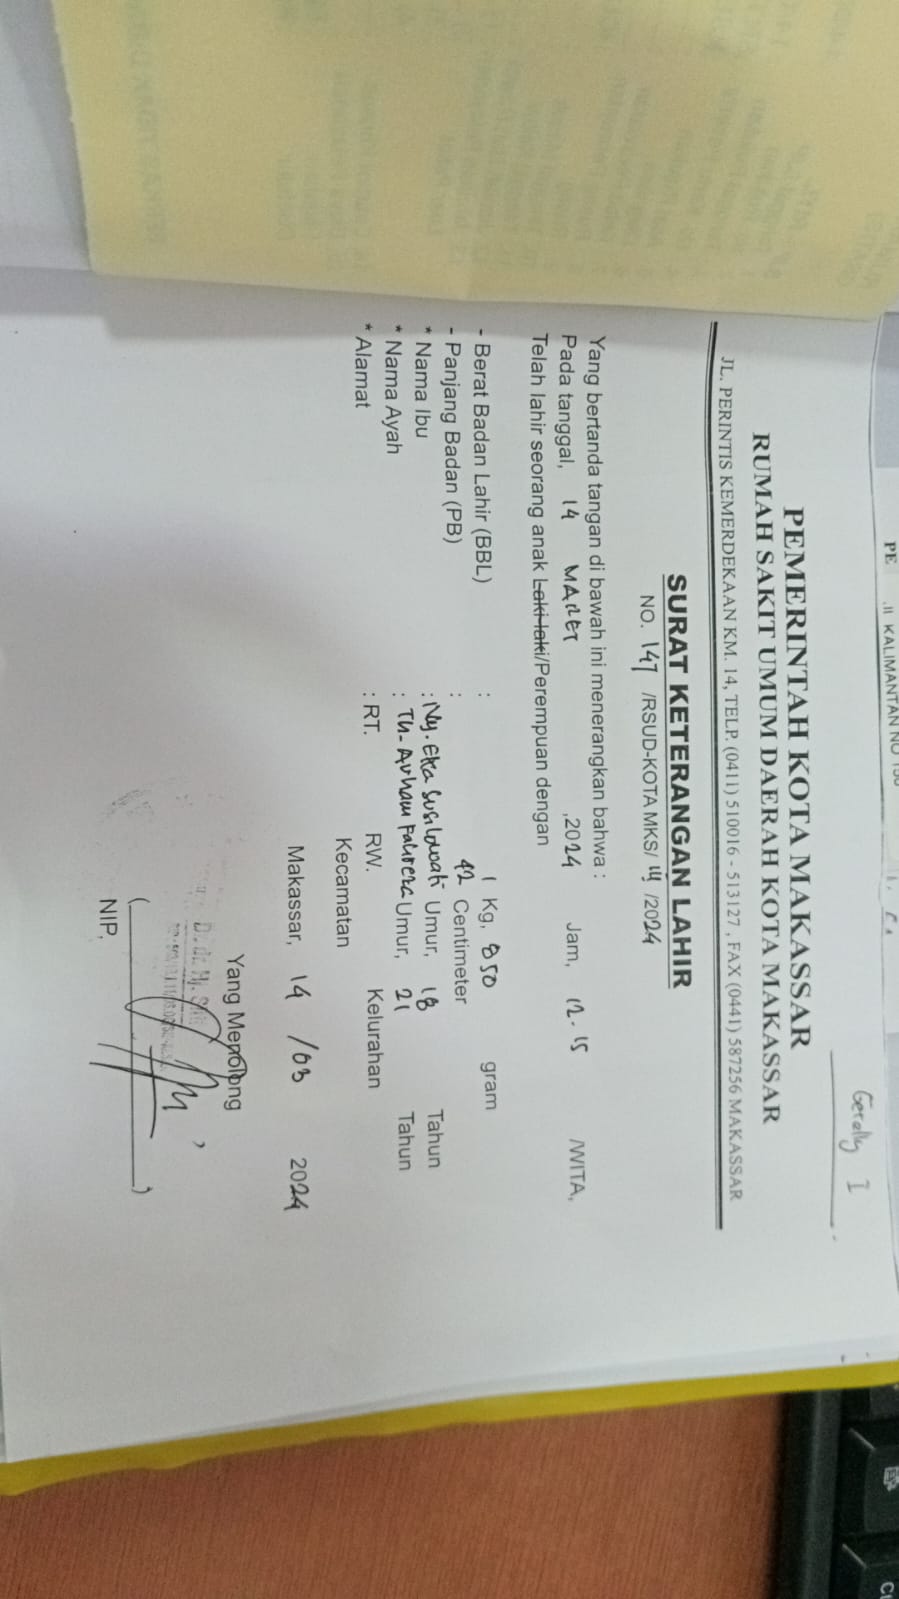 Gerally I
PEMERINTAH KOTA MAKASSAR
RUMAH SAKIT UMUM DAERAH KOTA MAKASSAR
JL. PERINTIS KEMERDEKAAN KM. 14, TELP. (0411) 510016 - 513127 , FAX (0441) 587256 MAKASSAR
SURAT KETERANGAN LAHIR
NO. 147 /RSUD-KOTA MKS/ III /2024
Yang bertanda tangan di bawah ini menerangkan bahwa :
Pada tanggal, 14 MARET ,2024 Jam, 12.15 /WITA,
Telah lahir seorang anak Laki-laki/Perempuan dengan
- Berat Badan Lahir (BBL) : 1 Kg, 850 gram
- Panjang Badan (PB) : 42 Centimeter
* Nama Ibu : Ny. Eka Susilowati Umur, 18 Tahun
* Nama Ayah : Tn. Umur, 21 Tahun
* Alamat : RT. RW. Kelurahan
Kecamatan
Makassar, 14 /03 2024
Yang Menolong
( )
NIP.
PE
KALIMANTAN NO